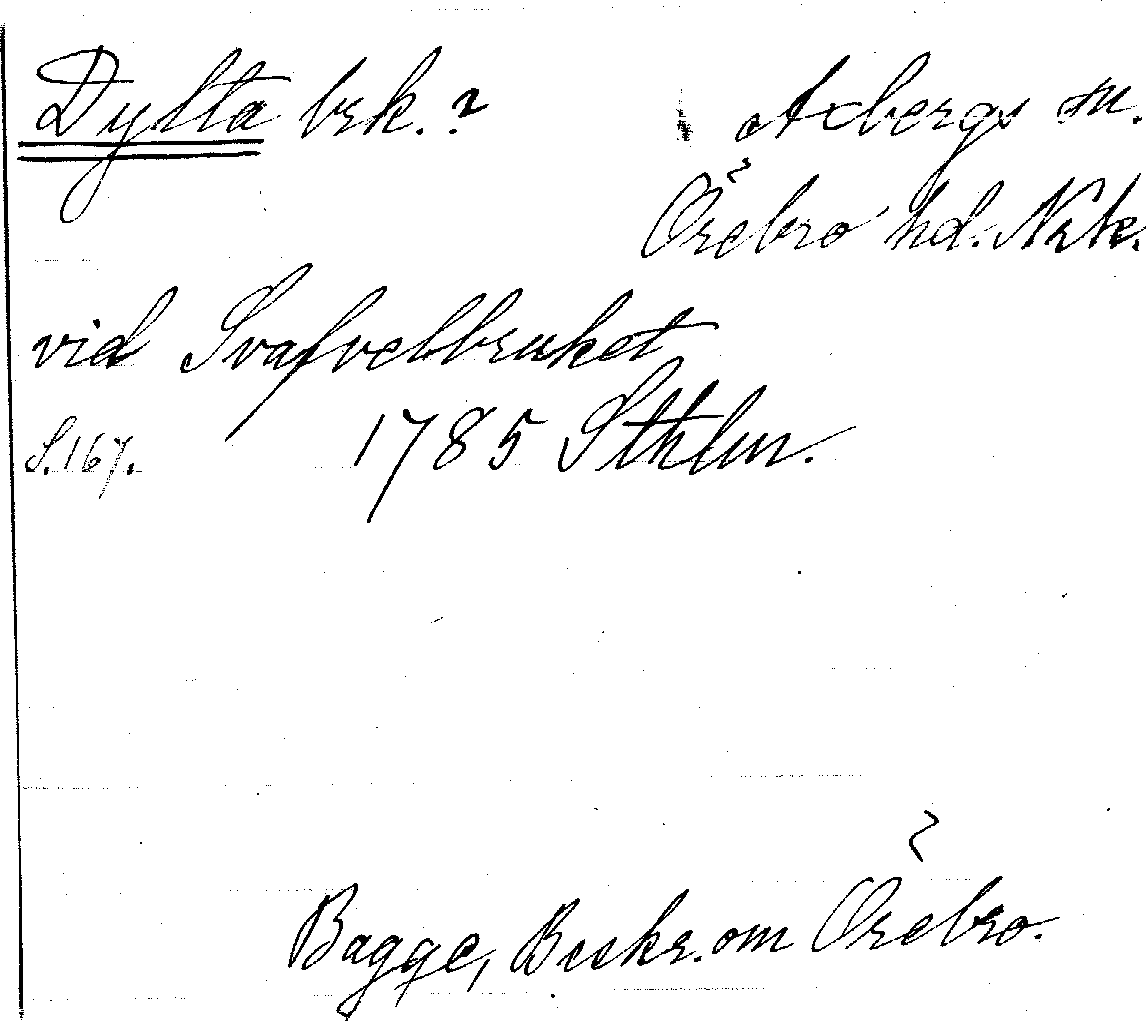 Dylta brk.? Axbergs sn.
Örebro hd. Nrk.
vid Svafvelbruket
S. 167. 1785 Sthlm.
Bagge, Beskr. om Örebro.